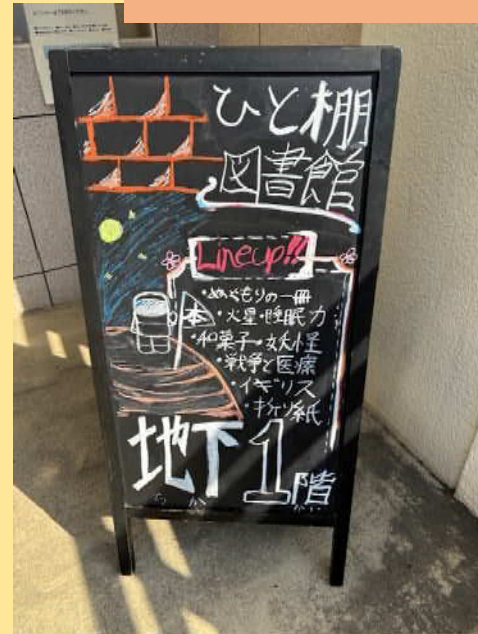 ひと棚
図書館
Lineup!!
・ぬくもりの一冊
本・火星・睡眠力
・和菓子・妖怪
・戦争と医療
・イギリス
・折り紙
地下1階
ちか かい